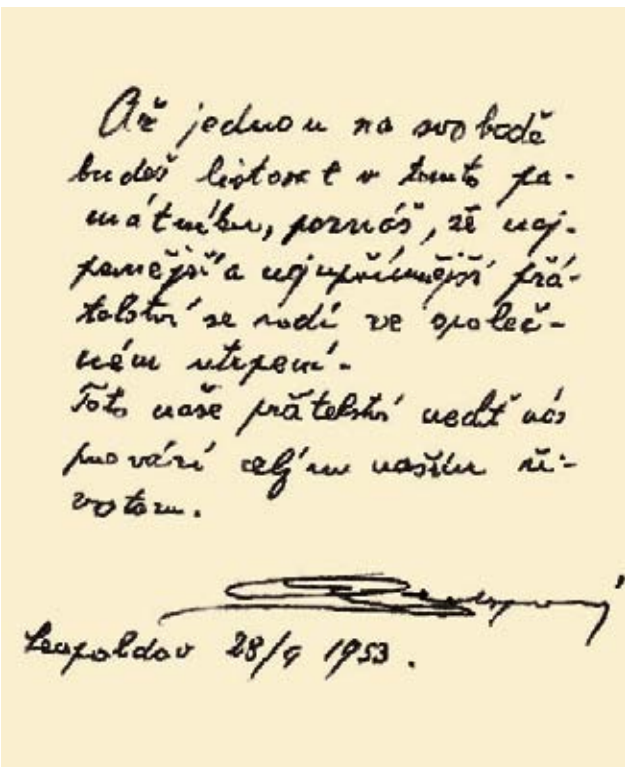 Až jednou na svobodě
budeš listovat v tomto pa-
mátníku, poznáš, že nej-
pevnější a nejupřímnější přá-
telství se rodí ve společ-
ném utrpení.
Toto naše přátelství nechť nás
provází celým naším ži-
votem.
Leopoldov 28/9 1953.